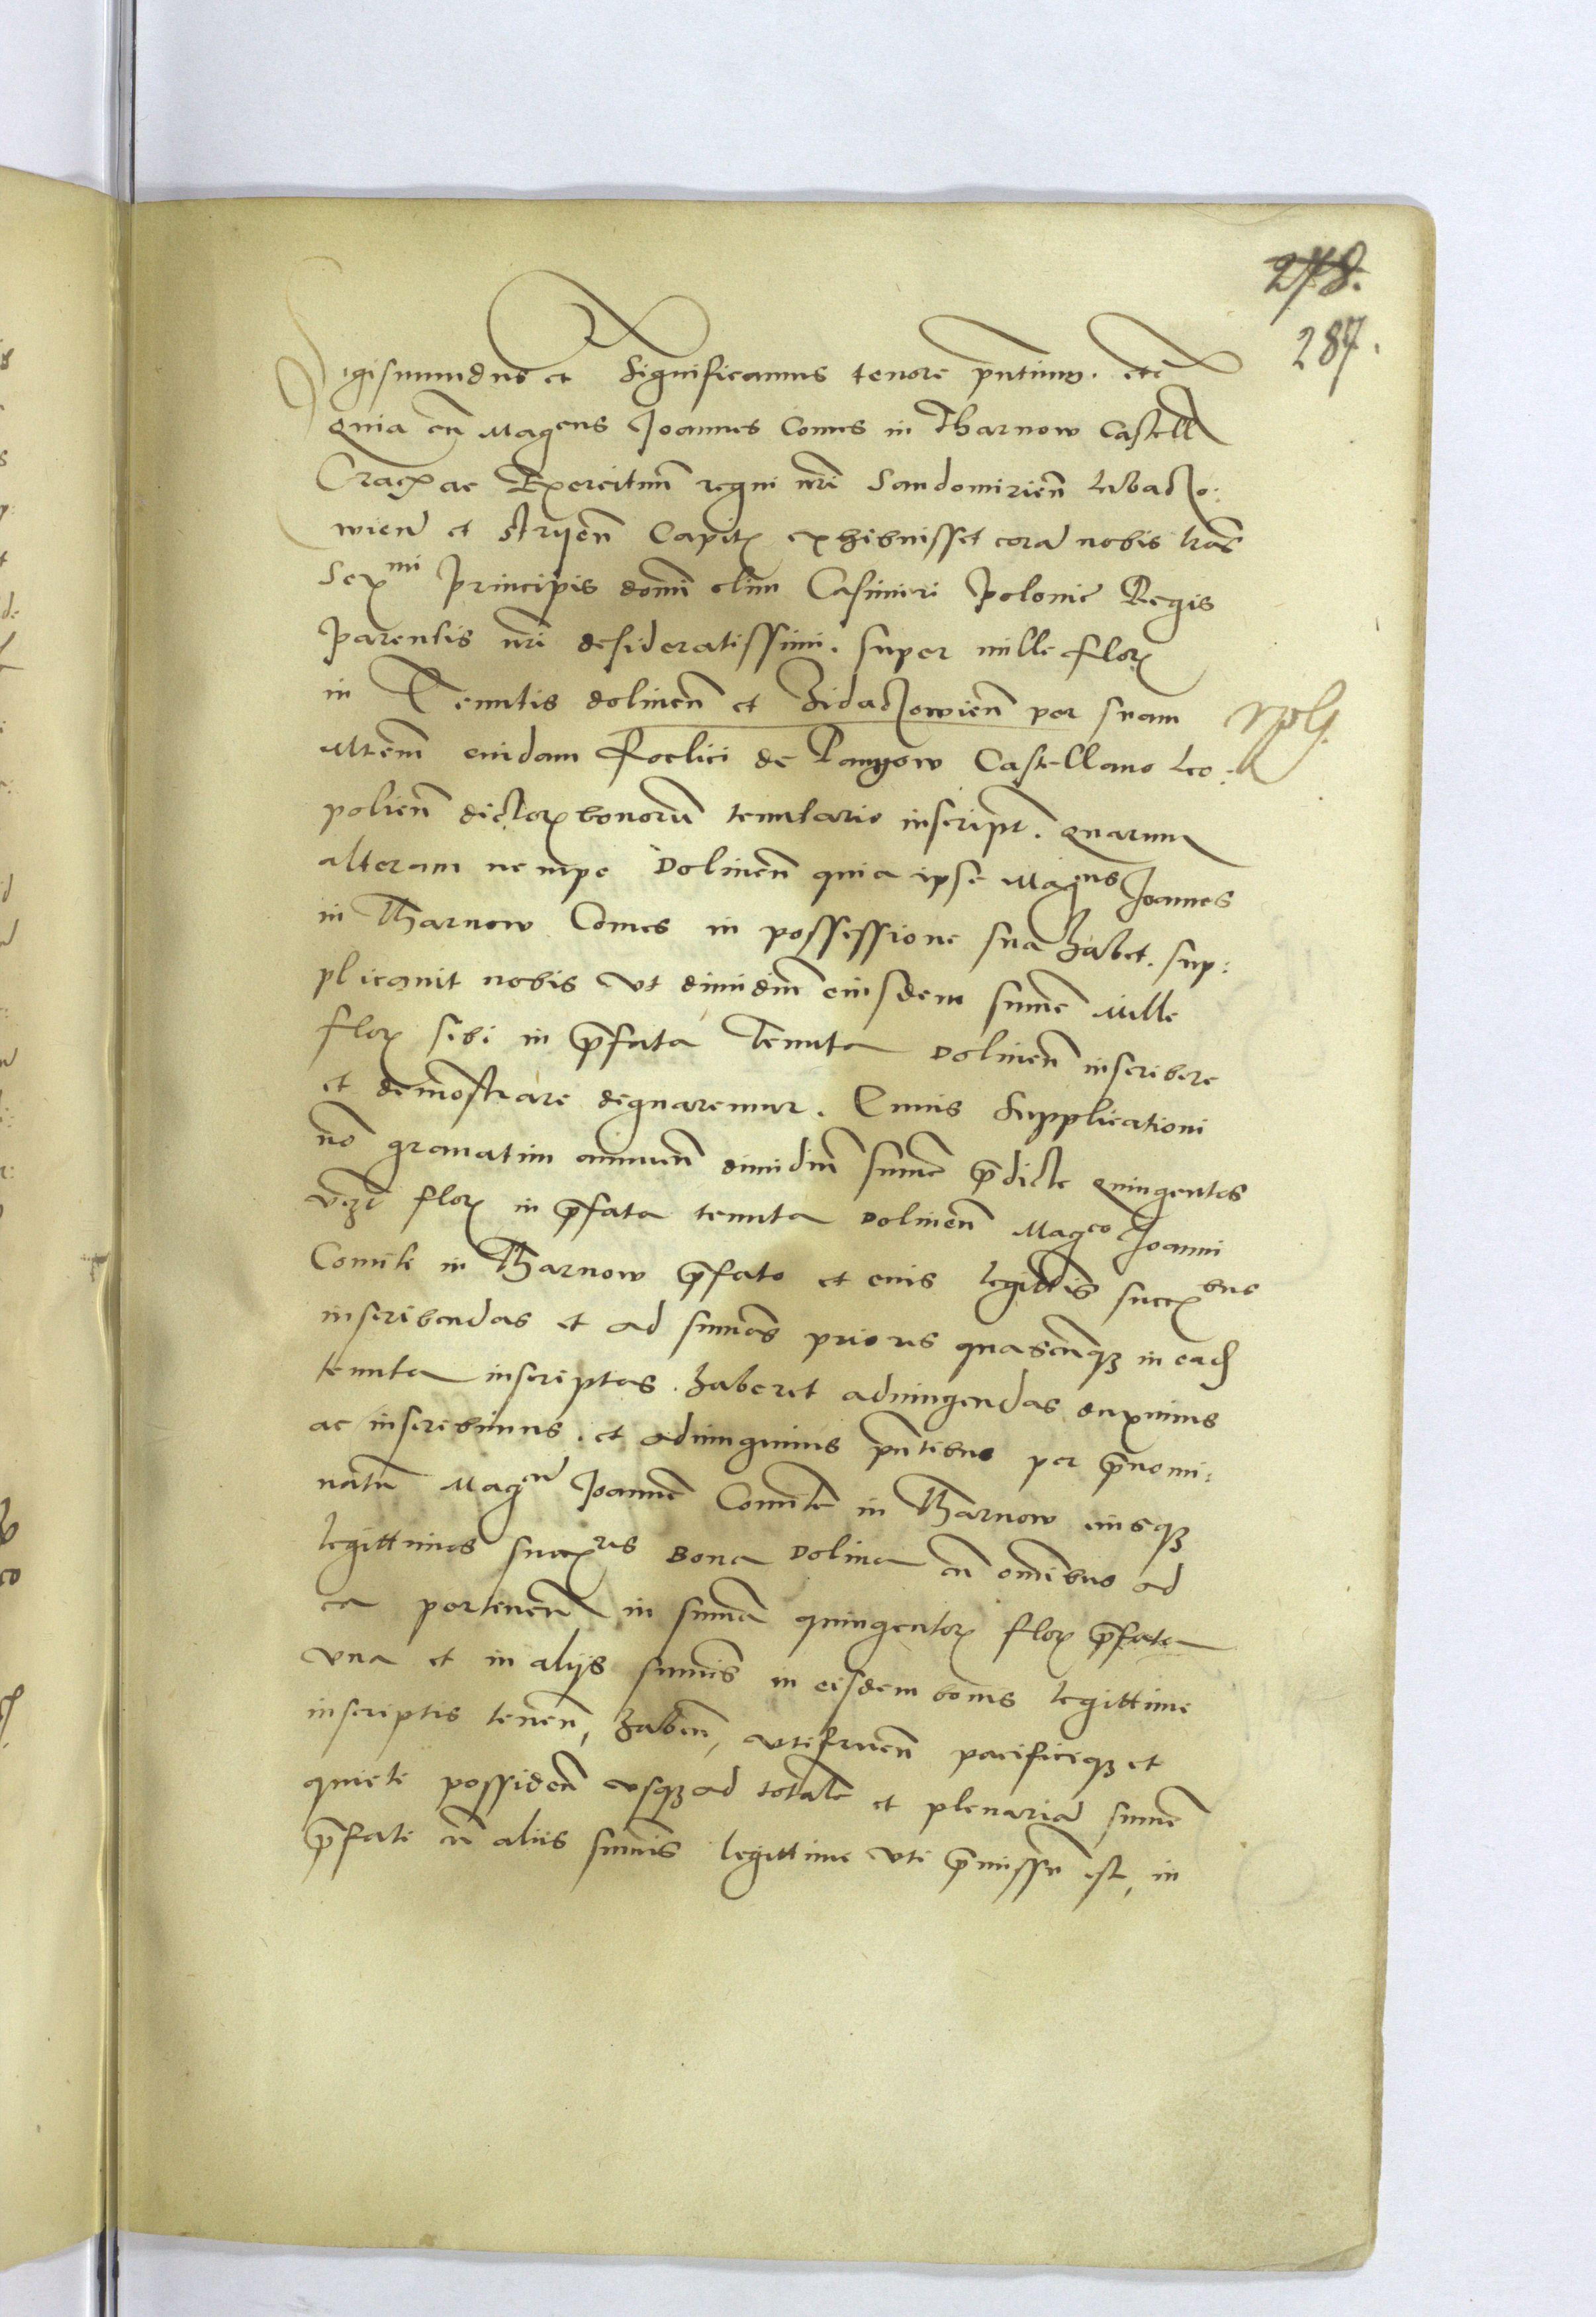 278.
287.
Sigismundus et Significamus tenore pntium. etc
Quia cu Magcus Joannes Comes in Tharnow Castell
Crac ac Exercituu regni nri Sandomirien Lubaczo:
wien et Stryen Capit exhibuisset cora nobis lras
Sermi Principis domi olim Casimiri Polonie Regis
Parentis nri desideratissimi. super mille flor
in Tenutis dolinen et Zidaczowien per suam
Mtem cuidam Foelici de Panyow Castellano Leo:
polien dictor bonoru tenutario inscript. Quarum
alteram nempe Dolinen quia ipse Magcus Joannes
in Tharnow Comes in possessione sua habet. sup:
plicauit nobis vt dimidiu eiusdem sume Mille
flor sibi in pfata Tenuta Dolinen inscribere
et demostrare dignaremur. Cuius Supplicationi
no grauatim annuen dimidiu sume pdicte quingentos
vcz flor in pfata tenuta Dolinen Magco Joanni
Comiti in Tharnow pfato et eius legittis succbus
inscribendas et ad sumas priores quascuqz in ead
tenuta inscriptas. haberet adiungendas duximus
ac inscribimus. et adiungimus pntibus per pnomi:
natu Magcu Joanne Comite in Tharnow eiusqz
legittimos succres Bona Dolina cu omibus ad
ea pertinen in suma quingentor flor pfata
vna et in alijs sumis in eisdem bonis legittime
inscriptis tenen, haben, vtifruen pacificeqz et
quiete possiden vsqz ad totale et plenaria sume
pfate cu aliis sumis legittime vti pmissu est, in